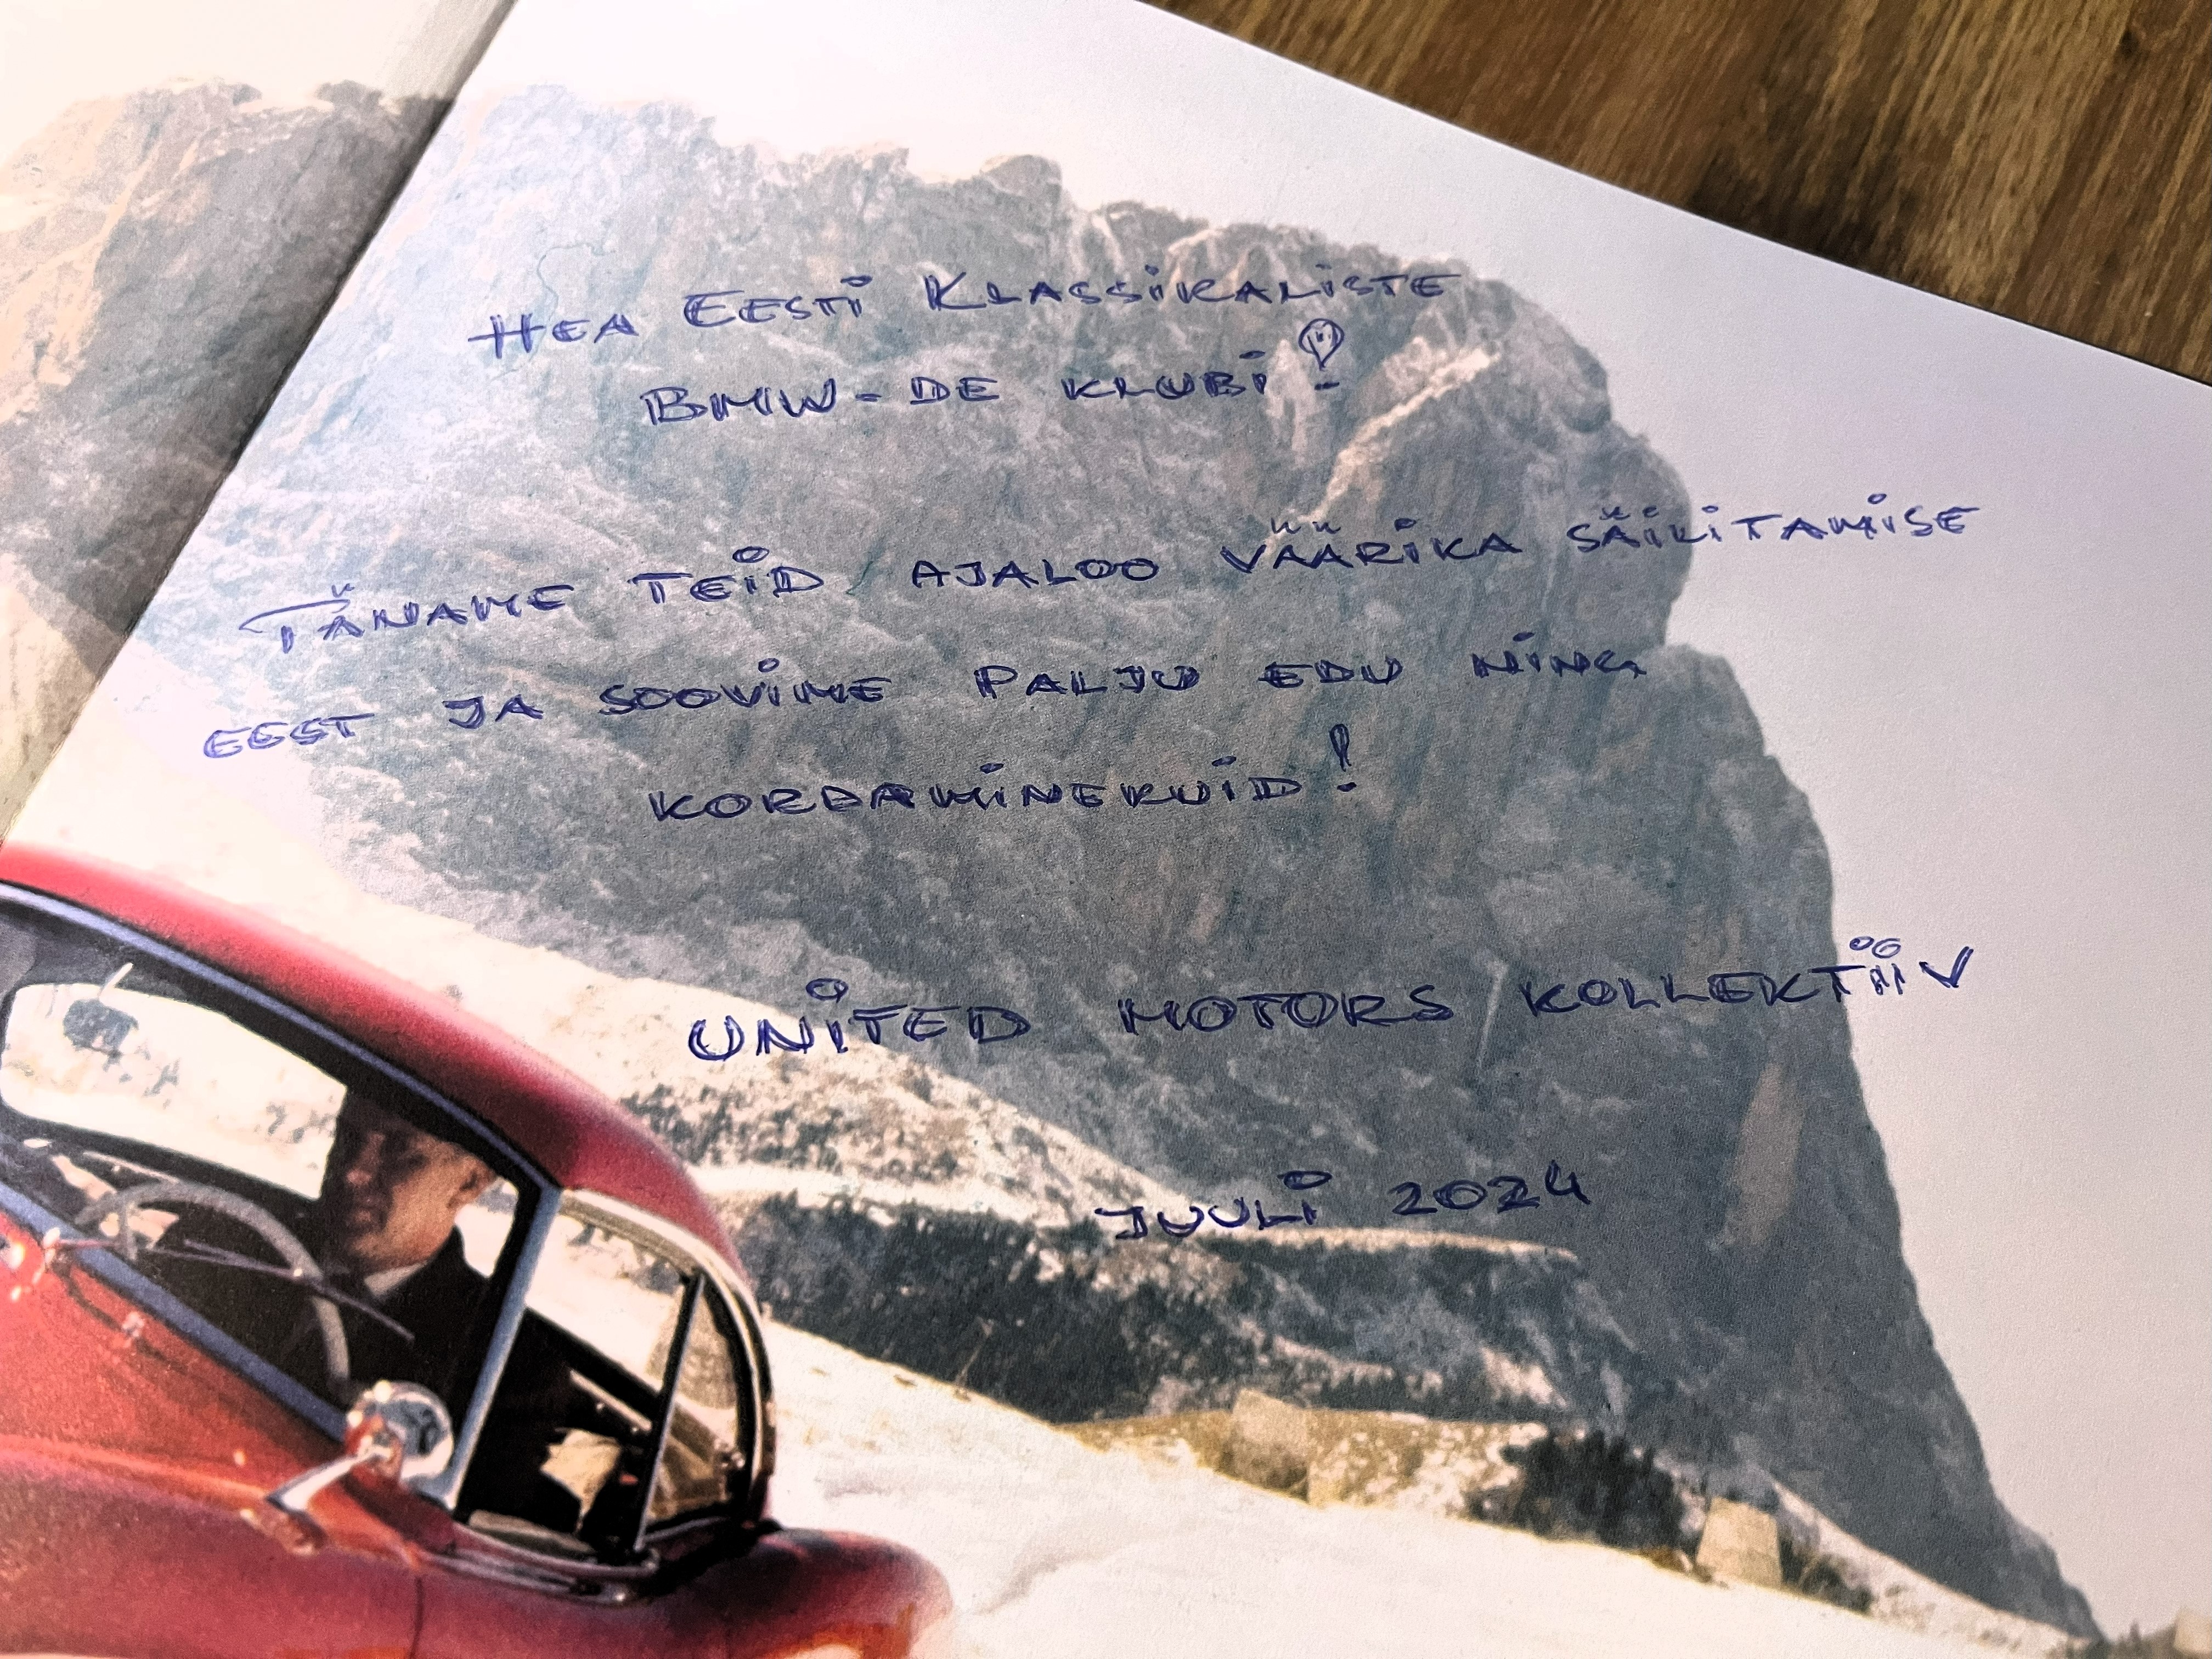 HEA EESTI KLASSIKALISTE
BMW-DE KLUBI!
TÄNAME TEID AJALOO VÄÄRIKA SÄILITAMISE
EEST JA SOOVIME PALJU EDU NING
KORDAMINEKUID!
UNITED MOTORS KOLLEKTIIV
JUULI 2024